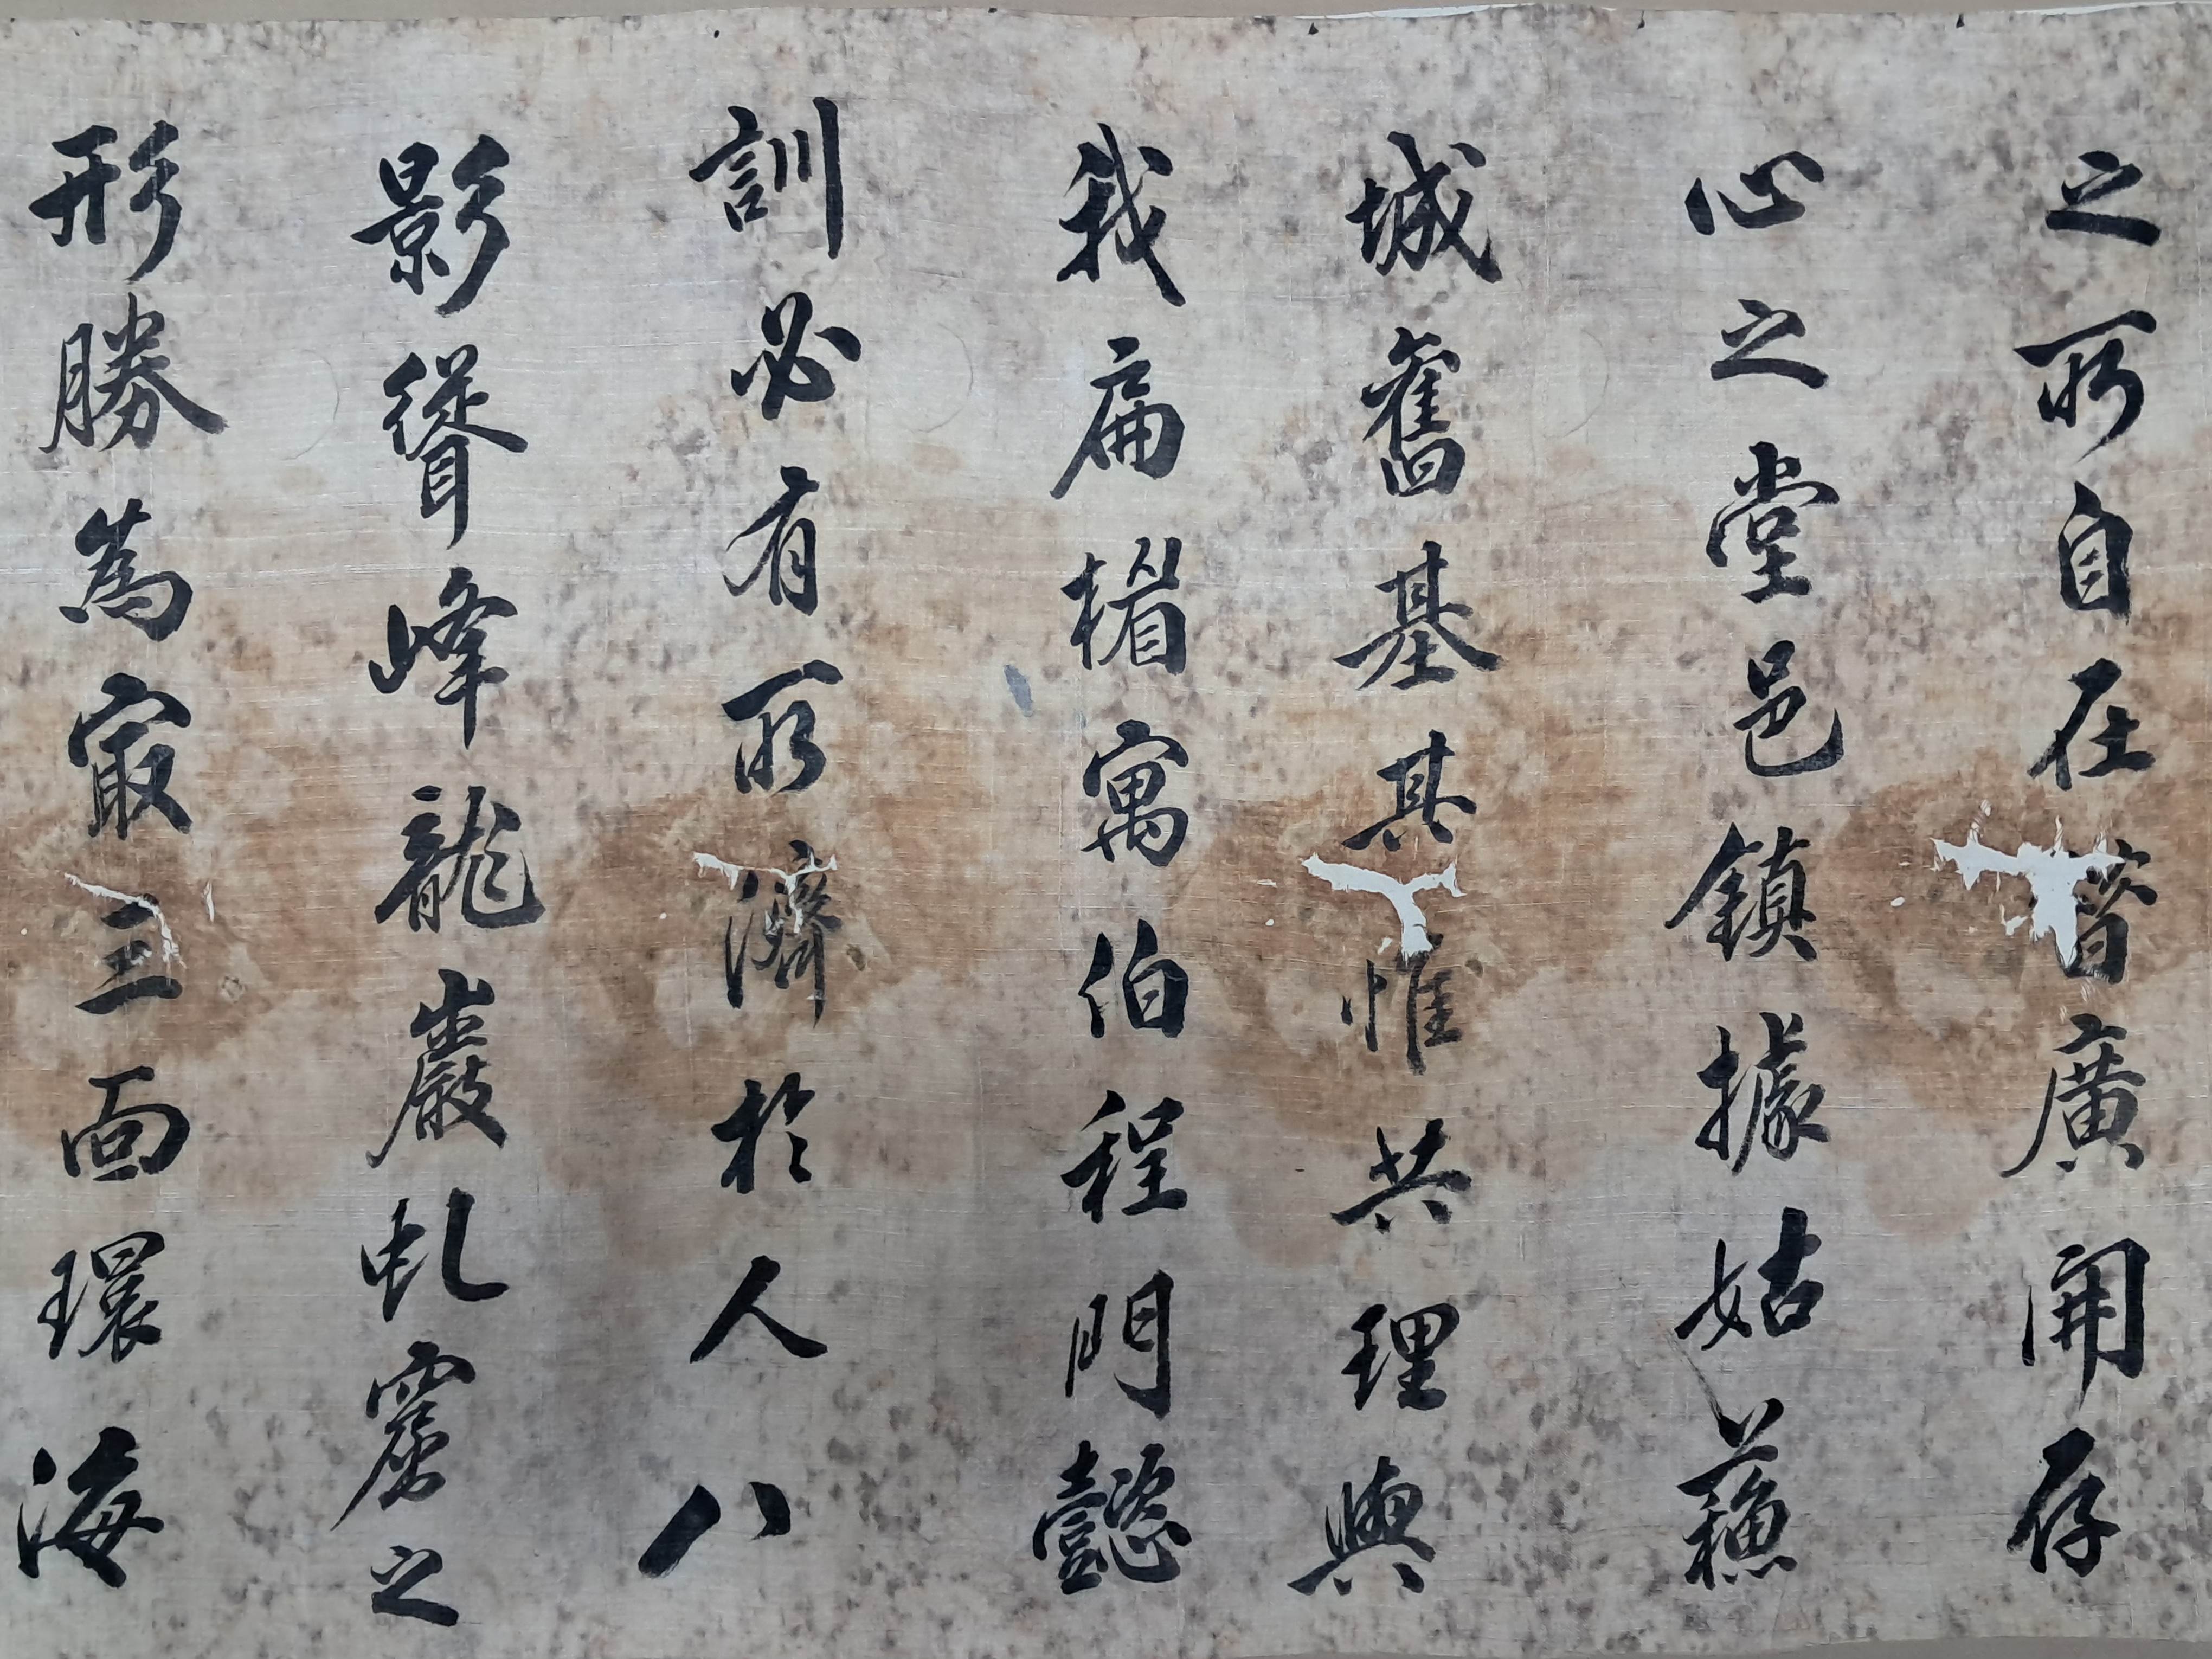 之所自在皆廣開存
心之堂邑鎮據姑蘓
城舊基其惟共理與
我扁楣寓伯程門懿
訓必有所濟於人八
影聳峰龍巖虬窟之
形勝為冣三面環海